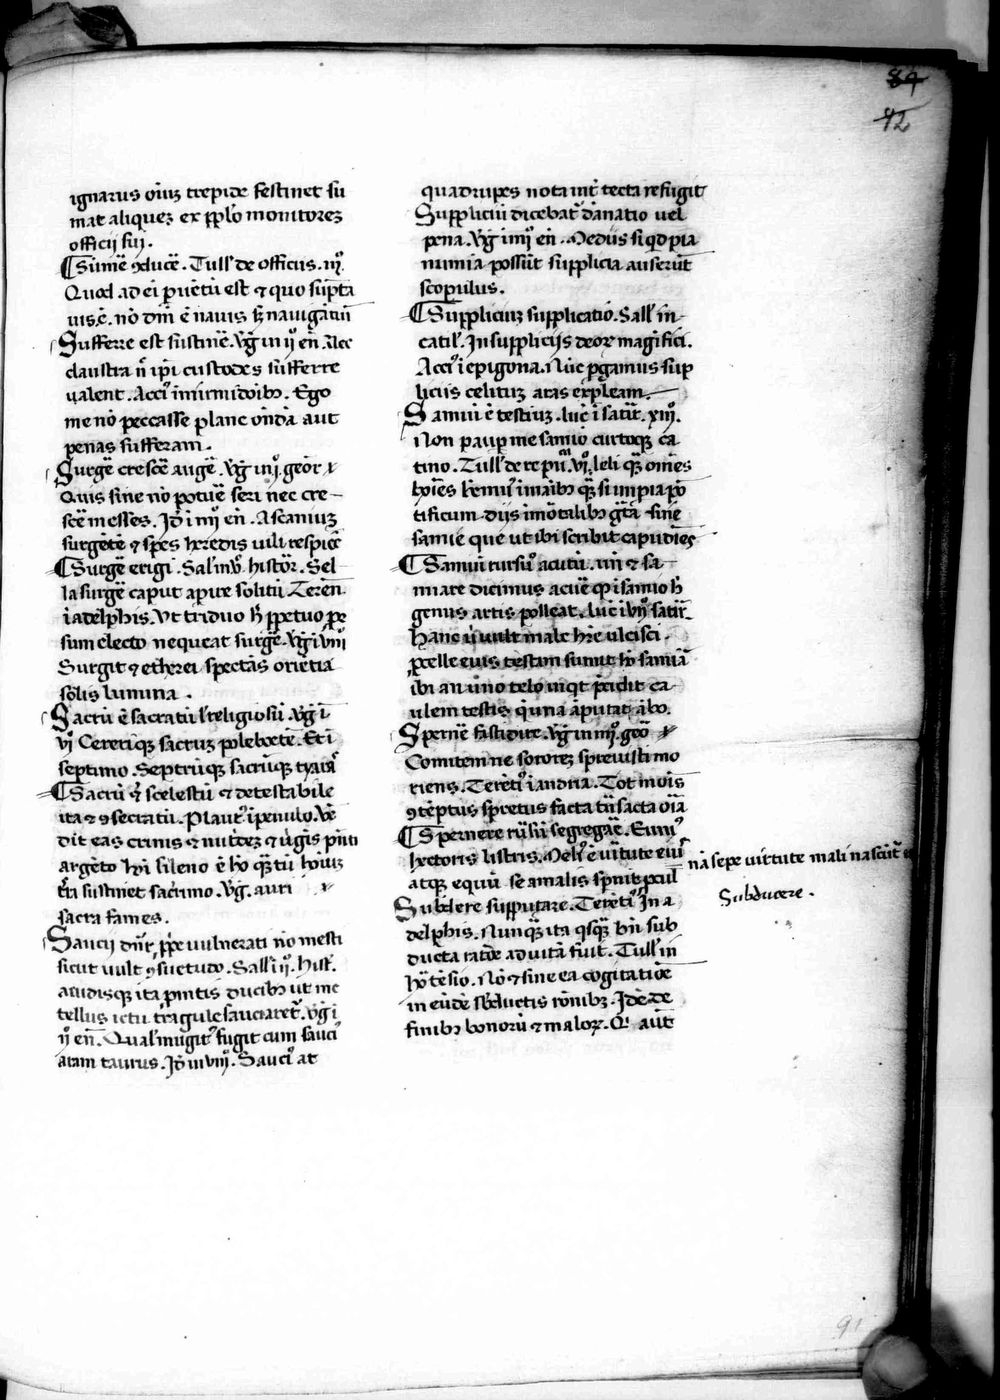 84
92
ignarus oiuꝫ trepide festinet su
mat aliqueꝫ ex pplo monitoreꝫ
officij sui.
¶ Sumē ꝯducē. Tull' de officiis. iij.
Quod ad eū puētū est ⁊ quo sūpta
nō dm̄ ē nauis sꝫ nauigātiū
Sufferre est sustinē. V̄g in ij en̄. Nec
claustra n̄ ipi custodes sufferre
ualent. Acci' Ego
me nō peccasse plane ōndā aut
penas sufferam.
Surgē crescē augē. V̄g iiij. geor
Quis sine nō potuē seri nec cre
scē messes. Jd̄ i iiij en̄. Ascaniuꝫ
surgētē ⁊ spes heredis iuli respicē
¶ Surgē erigi. Sal' inv̄. histōr. Sel
la surgē caput apire solitū. Terēn.
i adelphis. Ut triduo h̄ ppetuo pe
sum electo nequeat surgē. V̄g i viij
Surgit ⁊ etherei spectās oriētia
solis lumina.
Sacrū ē sacratū l' religiosū. V̄g i
vj Cereriqꝫ sacruꝫ polebcētē. Et i
septimo. Septrūqꝫ sacrūqꝫ tyarā
¶ Sacrū ē scelestū ⁊ detestabile
ita ⁊ ꝯsecratū. Plaut' i penulo. Vē
dit eas ⁊ nutrēꝫ ⁊ ūgīs
argēto hōi sileno ē hō qꝫ tū hōiuꝫ
t̄ra sustinet sacrimo. V̄g. auri
sacra fames.
Saucij dn̄r ppe uulnerati nō mesti
sicut uult ꝯsuetudo. Sall' i ij. Hist.
audisqꝫ ita pmtis ducibꝫ ut me
tellus ictu tragule sauciaret. V̄g i
ij en̄. Qual' mugit' fugit cum sauci'
aram taurus. Jd̄ in viij. Sauci' at
quadrupes nota int̄ tecta refugit
Suppliciū dicebat̄ dānatio uel
pena. V̄g i iiij en̄. Mediis si qd pia
numia possūt supplicia ausurū
scopulus.
¶ Suppliciuꝫ supplicatiō. Sall' in
catil'. In suppliciis deoꝝ magifici.
Acci' i epigona. Nūc pgamus sup
liciis celituꝫ aras expleam.
Samiū ē testiuꝫ. Luc' i satir. xiij.
Non paup me samio curtoqꝫ ca
tino. Tull' de re pu. vj. leli qꝫ omēs
simpia pō
tificum diis imōtalibꝫ grā sine
samie que ut ibi scribit capudiēs
¶ Samiū rursū acutū. un̄ ⁊ sa
miare dicimus acuē qꝫ i samio h̄
genus artis polleat. Luc' i vij satir.
Hanc ū uult male h̄re ulcisci.
pcelle euis testam sumit hō samiā
ibi an uno telo inqt pcidit ca
ulem testis q̄ unā āputat abo.
Spernē fastidire. V̄g in iiij. geo
Comitem ne sororeꝫ spreuisti mo
riens. Terēti' i andria. Tot mois
ꝯtēptus spretus facta trāsacta oīa
¶ Spernere rūsū segregāē. Enni'
hectoris listris. Meli' ē uirtute eiū
nā sepe uirtute mali nascit̄
atqꝫ equū se amalis spnit pcul
Subducere.
Subdere supputare. Terēti' In a
delphis. Nunqꝫ ita qsqꝫ bn̄ sub
ducta ratōe ad uitā fuit. Tull' in
hōrtēsio. Nō ⁊ sine ea cogitatiōe
in eūdē sbductis rōnibꝫ. Jdē de
finibꝫ bonorū ⁊ maloꝝ. Q' aūt
91